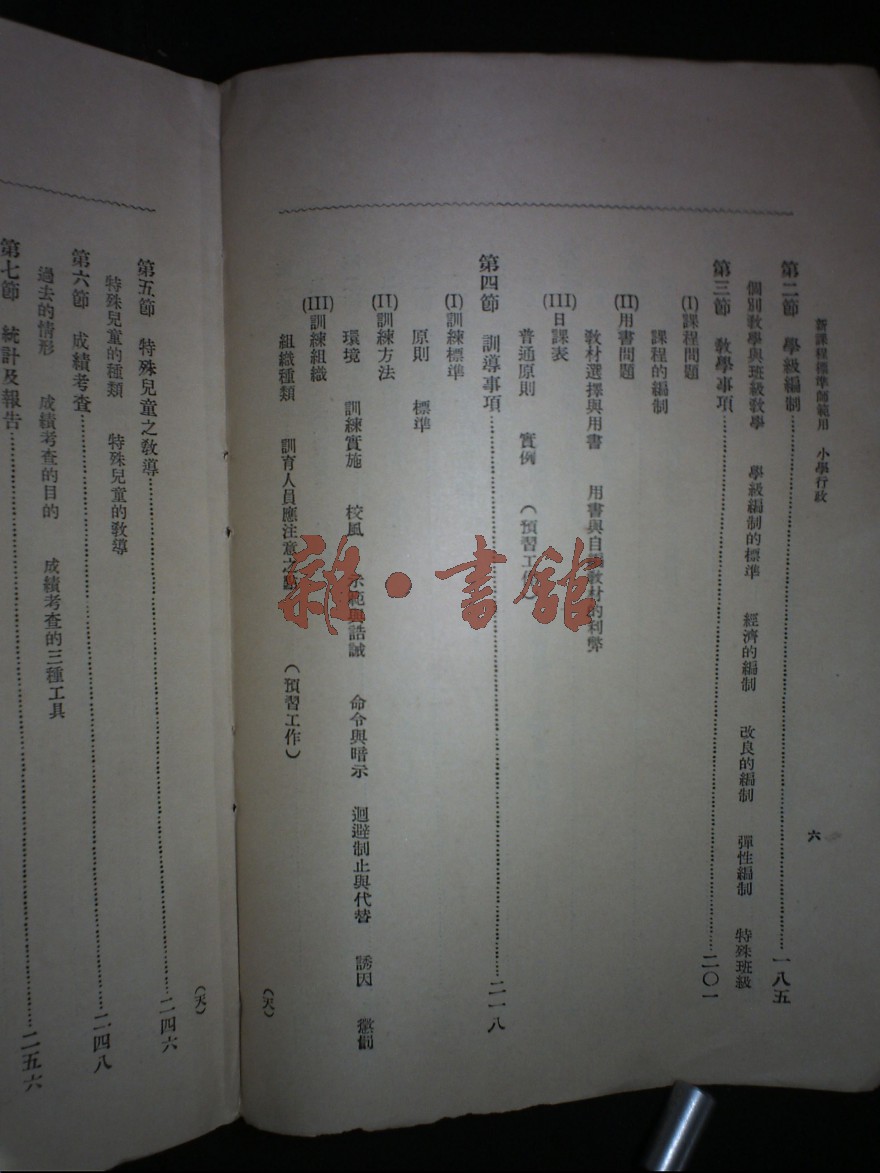 新課程標準師範用　小學行政
六
第二節　學級編制……一八五
個別教學與班級教學　學級編制的標準　經濟的編制　改良的編制　彈性編制　特殊班級
第三節　教學事項……二〇一
(I)課程問題
課程的編制
(II)用書問題
教材選擇與用書　用書與自編教材的利弊
(III)日課表
普通原則　實例　（預習工作
第四節　訓導事項……二一八
(I)訓練標準
原則　標準
(II)訓練方法
環境　訓練實施　校風　示範與誥誡　命令與暗示　迴避制止與代替　誘因　懲罰
(III)訓練組織
組織種類　訓育人員應注意之　（預習工作）
（天）
第五節　特殊兒童之教導……二四六
特殊兒童的種類　特殊兒童的教導
第六節　成績考查……二四八
過去的情形　成績考查的目的　成績考查的三種工具
第七節　統計及報告……二五六
（天）
雜·書館